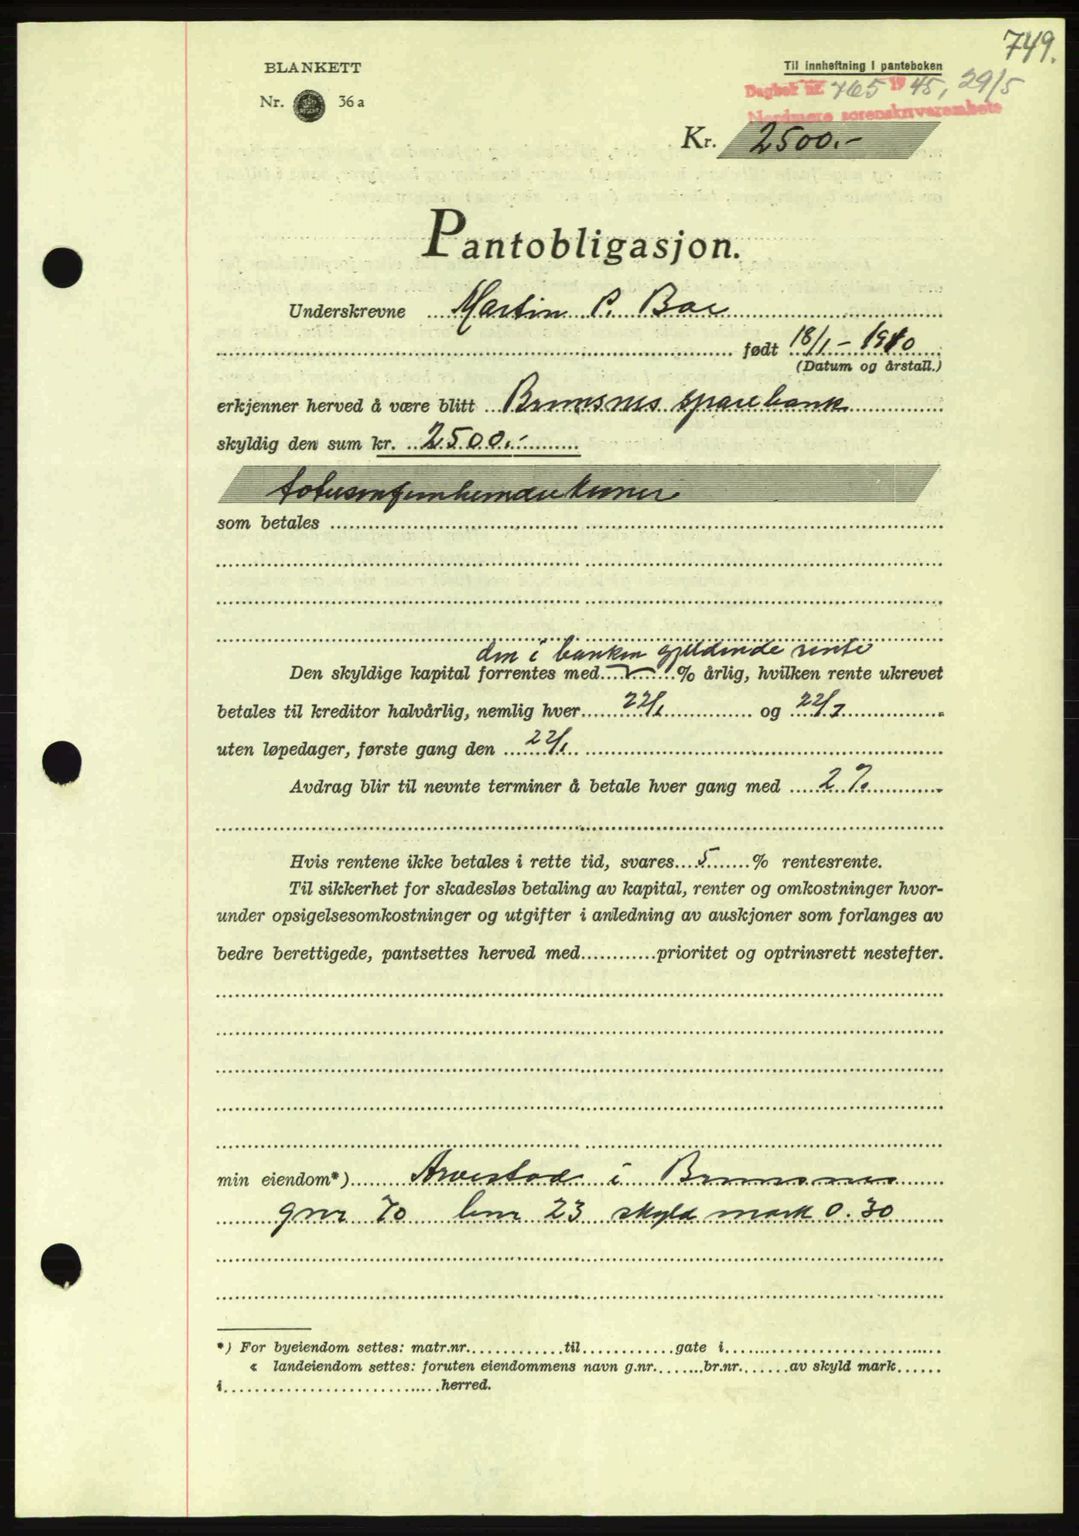 749.
BLANKETT
Nr. 36 a
Til innheftning i panteboken
Dagbok nr. 765 1945, 29/5
Nordmøre sorenskriverembete
Kr. 2500.-
Pantobligasjon.
Underskrevne Martin P. Boe
født 18/1 - 1910
(Datum og årstall.)
erkjenner herved å være blitt Bremsnes sparebank
skyldig den sum kr. 2500.-
totusenfemhundre kroner
som betales
den i banken gjeldende rente
Den skyldige kapital forrentes med % årlig, hvilken rente ukrevet
betales til kreditor halvårlig, nemlig hver 22/1 og 22/7
uten løpedager, første gang den 22/1
Avdrag blir til nevnte terminer å betale hver gang med 2 %
Hvis rentene ikke betales i rette tid, svares 5 % rentesrente.
Til sikkerhet for skadesløs betaling av kapital, renter og omkostninger hvor-
under opsigelsesomkostninger og utgifter i anledning av auskjoner som forlanges av
bedre berettigede, pantsettes herved med prioritet og optrinsrett nestefter.
min eiendom*) Arvestad i Bremsnes
gnr 70 bnr 23 skyld mark 0.30
*) For byeiendom settes: matr.nr. til gate i
« landeiendom settes: foruten eiendommens navn g.nr. br.nr. av skyld mark
i herred.